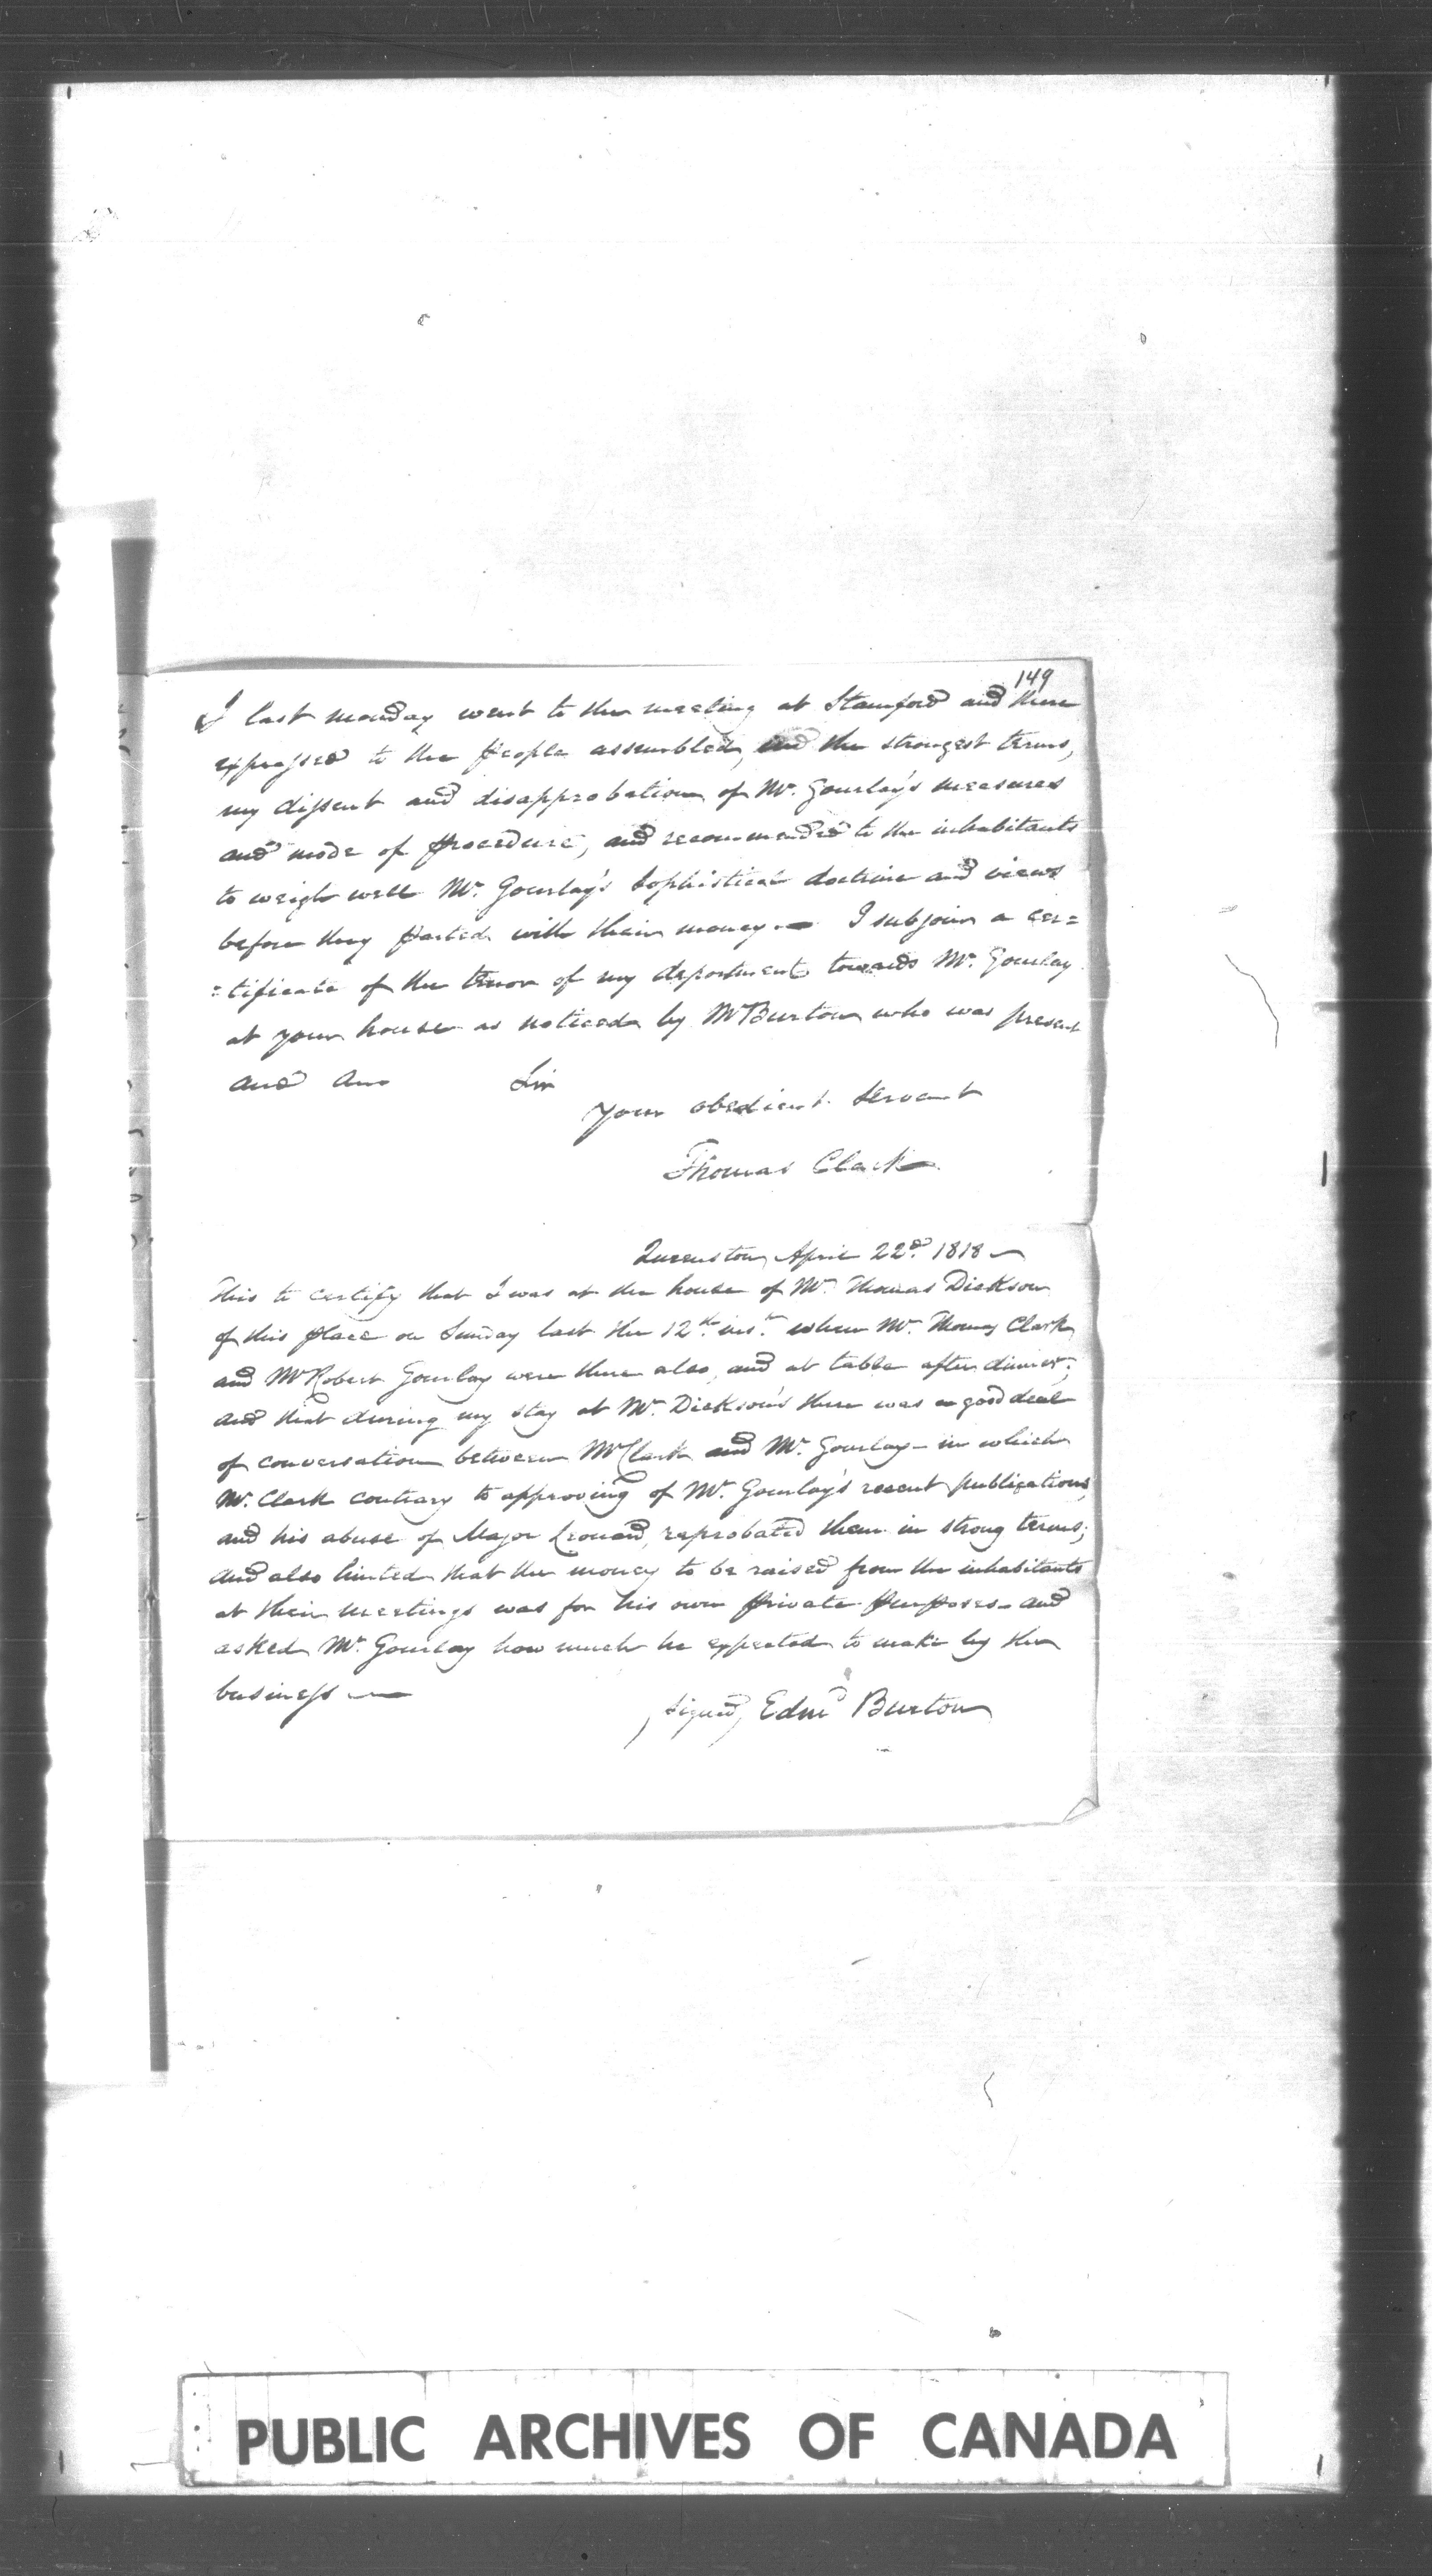 149
I last monday went to the meeting at Stamford and there
expressed to the people assembled, the strongest terms,
my dissent and disapprobation of Mr. Gourlay's measures
and mode of procedure, and recommended to the inhabitants
to weigh well Mr. Gourlay's Sophistical doctrine and views
before they parted with their money.— I subjoin a cer=
=tificate of the tenor of my deportment towards Mr. Gourlay
at your house as noticed by Mr Burton who was present
and am Sir
your obedient Servant
Thomas Clark
Queenston April 22d. 1818—
This to certify that I was at the house of Mr. Thomas Dickson
of this place on Sunday last the 12th. inst. when Mr. Thomas Clark
and Mr Robert Gourlay were there also, and at table after dinner;
and that during my stay at Mr. Dickson's there was a good deal
of conversation between Mr Clark and Mr. Gourlay— in which
Mr. Clark contrary to approving of Mr. Gourlay's recent publications,
and his abuse of Major Leonard, reprobated them in strong terms;
and also hinted that the money to be raised from the inhabitants
at their meetings was for his own private purposes— and
asked Mr. Gourlay how much he expected to make by the
business—
signed, Edmd Burton
PUBLIC ARCHIVES OF CANADA